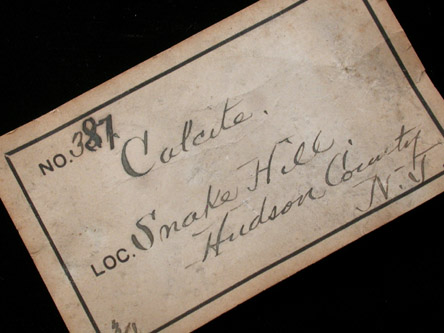 NO. 387
Calcite.
LOC. Snake Hill,
Hudson County
N. J